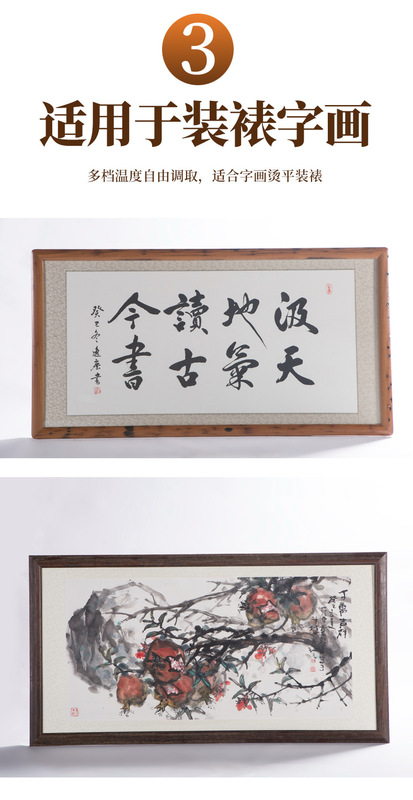 3
适用于装裱字画
多档温度自由调取，适合字画烫平装裱
汲天
地氣
讀古
今書
癸巳冬